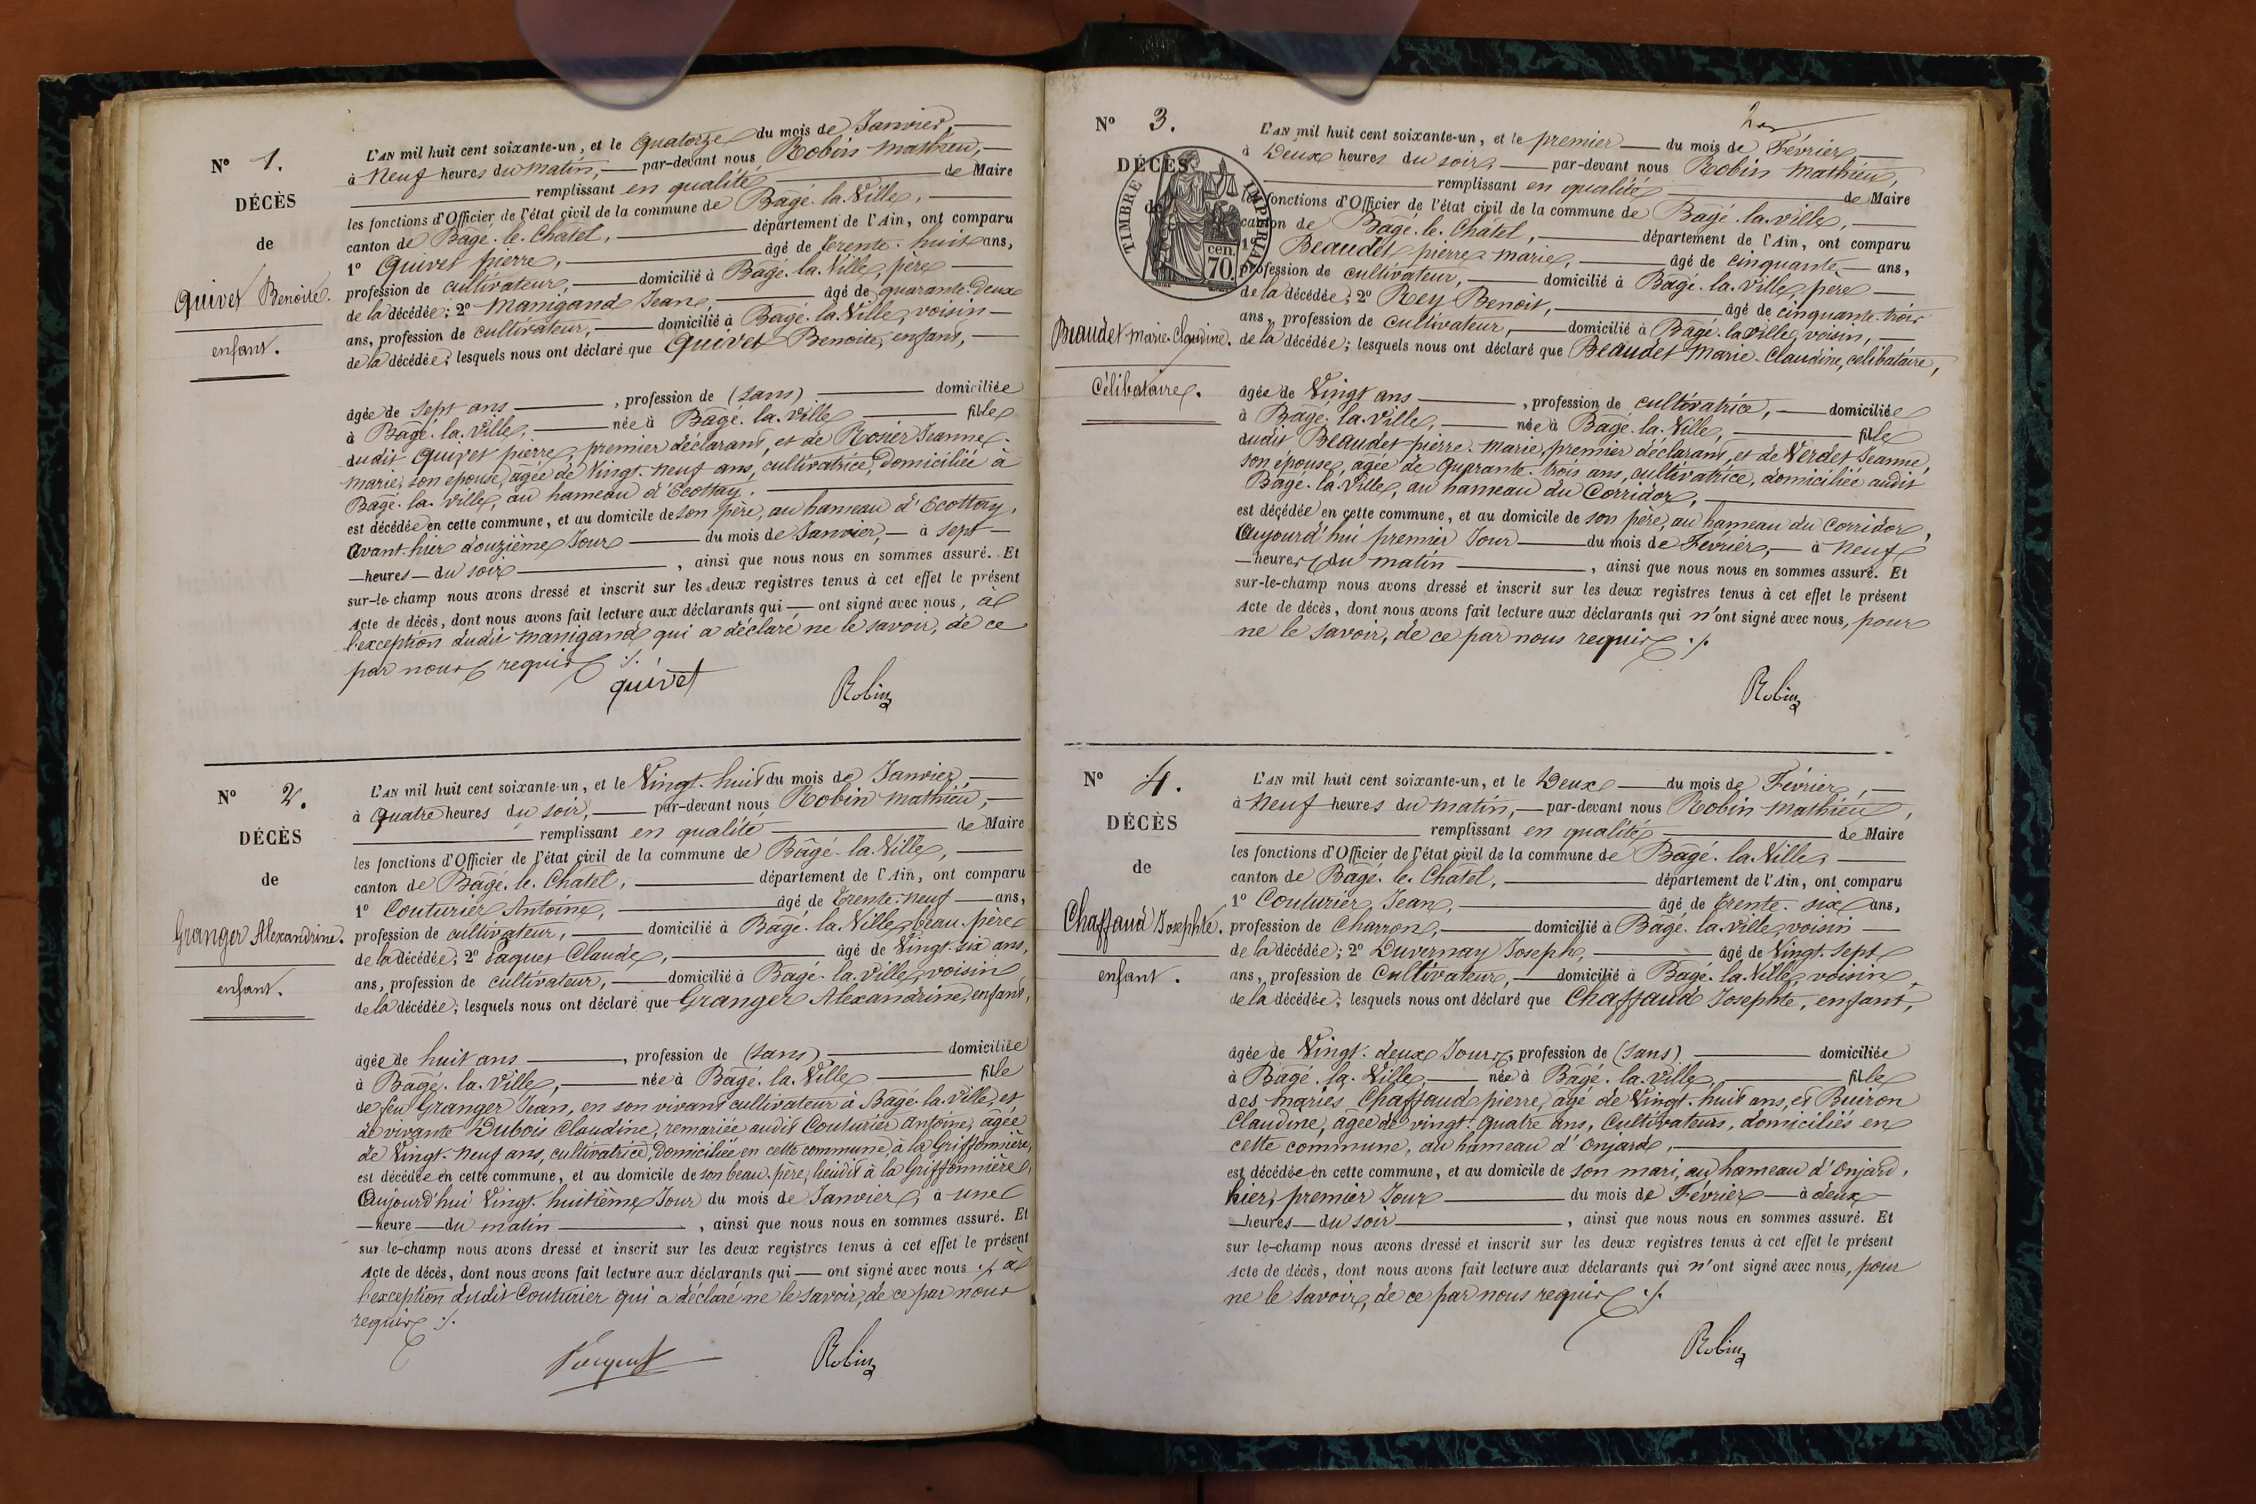 N° 1.
DÉCÈS
de
Quivet Benoite.
enfant.
L'AN mil huit cent soixante-un, et le quatorze du mois de Janvier,
à Neuf heures du matin, par-devant nous Robin Mathieu,
remplissant en qualité de Maire
les fonctions d'Officier de l'état civil de la commune de Bâgé-la-Ville,
canton de Bâgé-le-Chatel, département de l'Ain, ont comparu
1° Quivet pierre, âgé de trente-huit ans,
profession de cultivateur, domicilié à Bâgé-la-Ville, père
de la décédée; 2° Manigand Jean, âgé de quarante-deux
ans, profession de cultivateur, domicilié à Bâgé-la-Ville, voisin
de la décédée; lesquels nous ont déclaré que Quivet Benoite, enfant,
âgée de sept ans, profession de (sans) domiciliée
à Bâgé-la-Ville, née à Bâgé-la-Ville fille
dudit Quivet pierre, premier déclarant, et de Rosier Jeanne-
Marie, son épouse, âgée de Vingt-neuf ans, cultivatrice, domiciliée à
Bâgé-la-Ville, au hameau d'Ecottay.
est décédée en cette commune, et au domicile de son père, au hameau d'Ecottay,
avant-hier douzième Jour du mois de Janvier, à sept
heures du soir, ainsi que nous nous en sommes assuré. Et
sur-le-champ nous avons dressé et inscrit sur les deux registres tenus à cet effet le présent
Acte de décès, dont nous avons fait lecture aux déclarants qui ont signé avec nous, à
l'exception dudit Manigand qui a déclaré ne le savoir, de ce
par nous requis ./.
quivet Robin
N° 2.
DÉCÈS
de
Granger Alexandrine.
enfant.
L'AN mil huit cent soixante-un, et le Vingt-huit du mois de Janvier,
à quatre heures du soir, par-devant nous Robin Mathieu,
remplissant en qualité de Maire
les fonctions d'Officier de l'état civil de la commune de Bâgé-la-Ville,
canton de Bâgé-le-Chatel, département de l'Ain, ont comparu
1° Couturier Antoine, âgé de trente-neuf ans,
profession de cultivateur, domicilié à Bâgé-la-Ville, beau-père
de la décédée; 2° Paquet Claude, âgé de Vingt-six ans,
ans, profession de cultivateur, domicilié à Bagé-la-Ville, voisin
de la décédée; lesquels nous ont déclaré que Granger Alexandrine, enfant,
âgée de huit ans, profession de (sans) domiciliée
à Bâgé-la-Ville, née à Bâgé-la-Ville fille
de feu Granger Jean, en son vivant cultivateur à Bâgé-la-Ville, et
de vivante Dubois Claudine, remariée audit Couturier Antoine, âgée
de Vingt-neuf ans, cultivatrice, domiciliée en cette commune, à la Griffonnière,
est décédée en cette commune, et au domicile de son beau-père, lieudit à la Griffonnière,
Aujourd'hui Vingt-huitième Jour du mois de Janvier, à une
heure du matin, ainsi que nous nous en sommes assuré. Et
sur le-champ nous avons dressé et inscrit sur les deux registres tenus à cet effet le présent
Acte de décès, dont nous avons fait lecture aux déclarants qui ont signé avec nous ./. à
l'exception dudit Couturier qui a déclaré ne le savoir, de ce par nous
requis ./.
Robin
N° 3.
DÉCÈS
de
TIMBRE IMPÉRIAL
cen.
70
Beaudet Marie-Claudine.
Célibataire.
L'AN mil huit cent soixante-un, et le premier du mois de Février
à Deux heures du soir, par-devant nous Robin Mathieu,
remplissant en qualité de Maire
les fonctions d'Officier de l'état civil de la commune de Bâgé-la-ville,
canton de Bâgé-le-Châtel, département de l'Ain, ont comparu
1° Beaudet pierre-marie, âgé de cinquante ans,
profession de cultivateur, domicilié à Bâgé-la-Ville, père
de la décédée; 2° Rey Benoit, âgé de cinquante-trois
ans, profession de cultivateur, domicilié à Bâgé-la-ville, voisin,
de la décédée; lesquels nous ont déclaré que Beaudet Marie-Claudine, célibataire,
âgée de Vingt ans, profession de cultivatrice, domiciliée
à Bagé-la-Ville, née à Bâgé-la-Ville, fille
dudit Beaudet pierre-Marie, premier déclarant, et de Verdet Jeanne,
son épouse, âgée de Quarante-trois ans, cultivatrice, domiciliée audit
Bâgé-la-Ville, au hameau du Corridor,
est décédée en cette commune, et au domicile de son père, au hameau du Corridor,
Aujourd'hui premier Jour du mois de Février, à neuf
heures du matin, ainsi que nous nous en sommes assuré. Et
sur-le-champ nous avons dressé et inscrit sur les deux registres tenus à cet effet le présent
Acte de décès, dont nous avons fait lecture aux déclarants qui n'ont signé avec nous, pour
ne le savoir, de ce par nous requis ./.
Robin
N° 4.
DÉCÈS
de
Chaffaud Josephte.
enfant.
L'AN mil huit cent soixante-un, et le Deux du mois de Février,
à Neuf heures du matin, par-devant nous Robin Mathieu,
remplissant en qualité de Maire
les fonctions d'Officier de l'état civil de la commune de Bâgé-la-Ville,
canton de Bâgé-le-Châtel, département de l'Ain, ont comparu
1° Couturier Jean, âgé de trente-six ans,
profession de Charron, domicilié à Bâgé-la-Ville, voisin
de la décédée; 2° Duvernay Joseph, âgé de Vingt-sept
ans, profession de Cultivateur, domicilié à Bâgé-la-Ville, voisin,
de la décédée; lesquels nous ont déclaré que Chaffaud Josephte, enfant,
âgée de Vingt-deux Jours, profession de (sans) domiciliée
à Bâgé-la-Ville, née à Bâgé-la-Ville, fille
des mariés Chaffaud pierre, âgé de Vingt-huit ans, et Buiron
Claudine, âgée de vingt-quatre ans, Cultivateurs, domiciliés en
cette commune, au hameau d'Onjard,
est décédée en cette commune, et au domicile de son mari, au hameau d'Onjard,
hier, premier Jour du mois de Février à deux
heures du soir, ainsi que nous nous en sommes assuré. Et
sur le-champ nous avons dressé et inscrit sur les deux registres tenus à cet effet le présent
Acte de décès, dont nous avons fait lecture aux déclarants qui n'ont signé avec nous, pour
ne le savoir, de ce par nous requis ./.
Robin